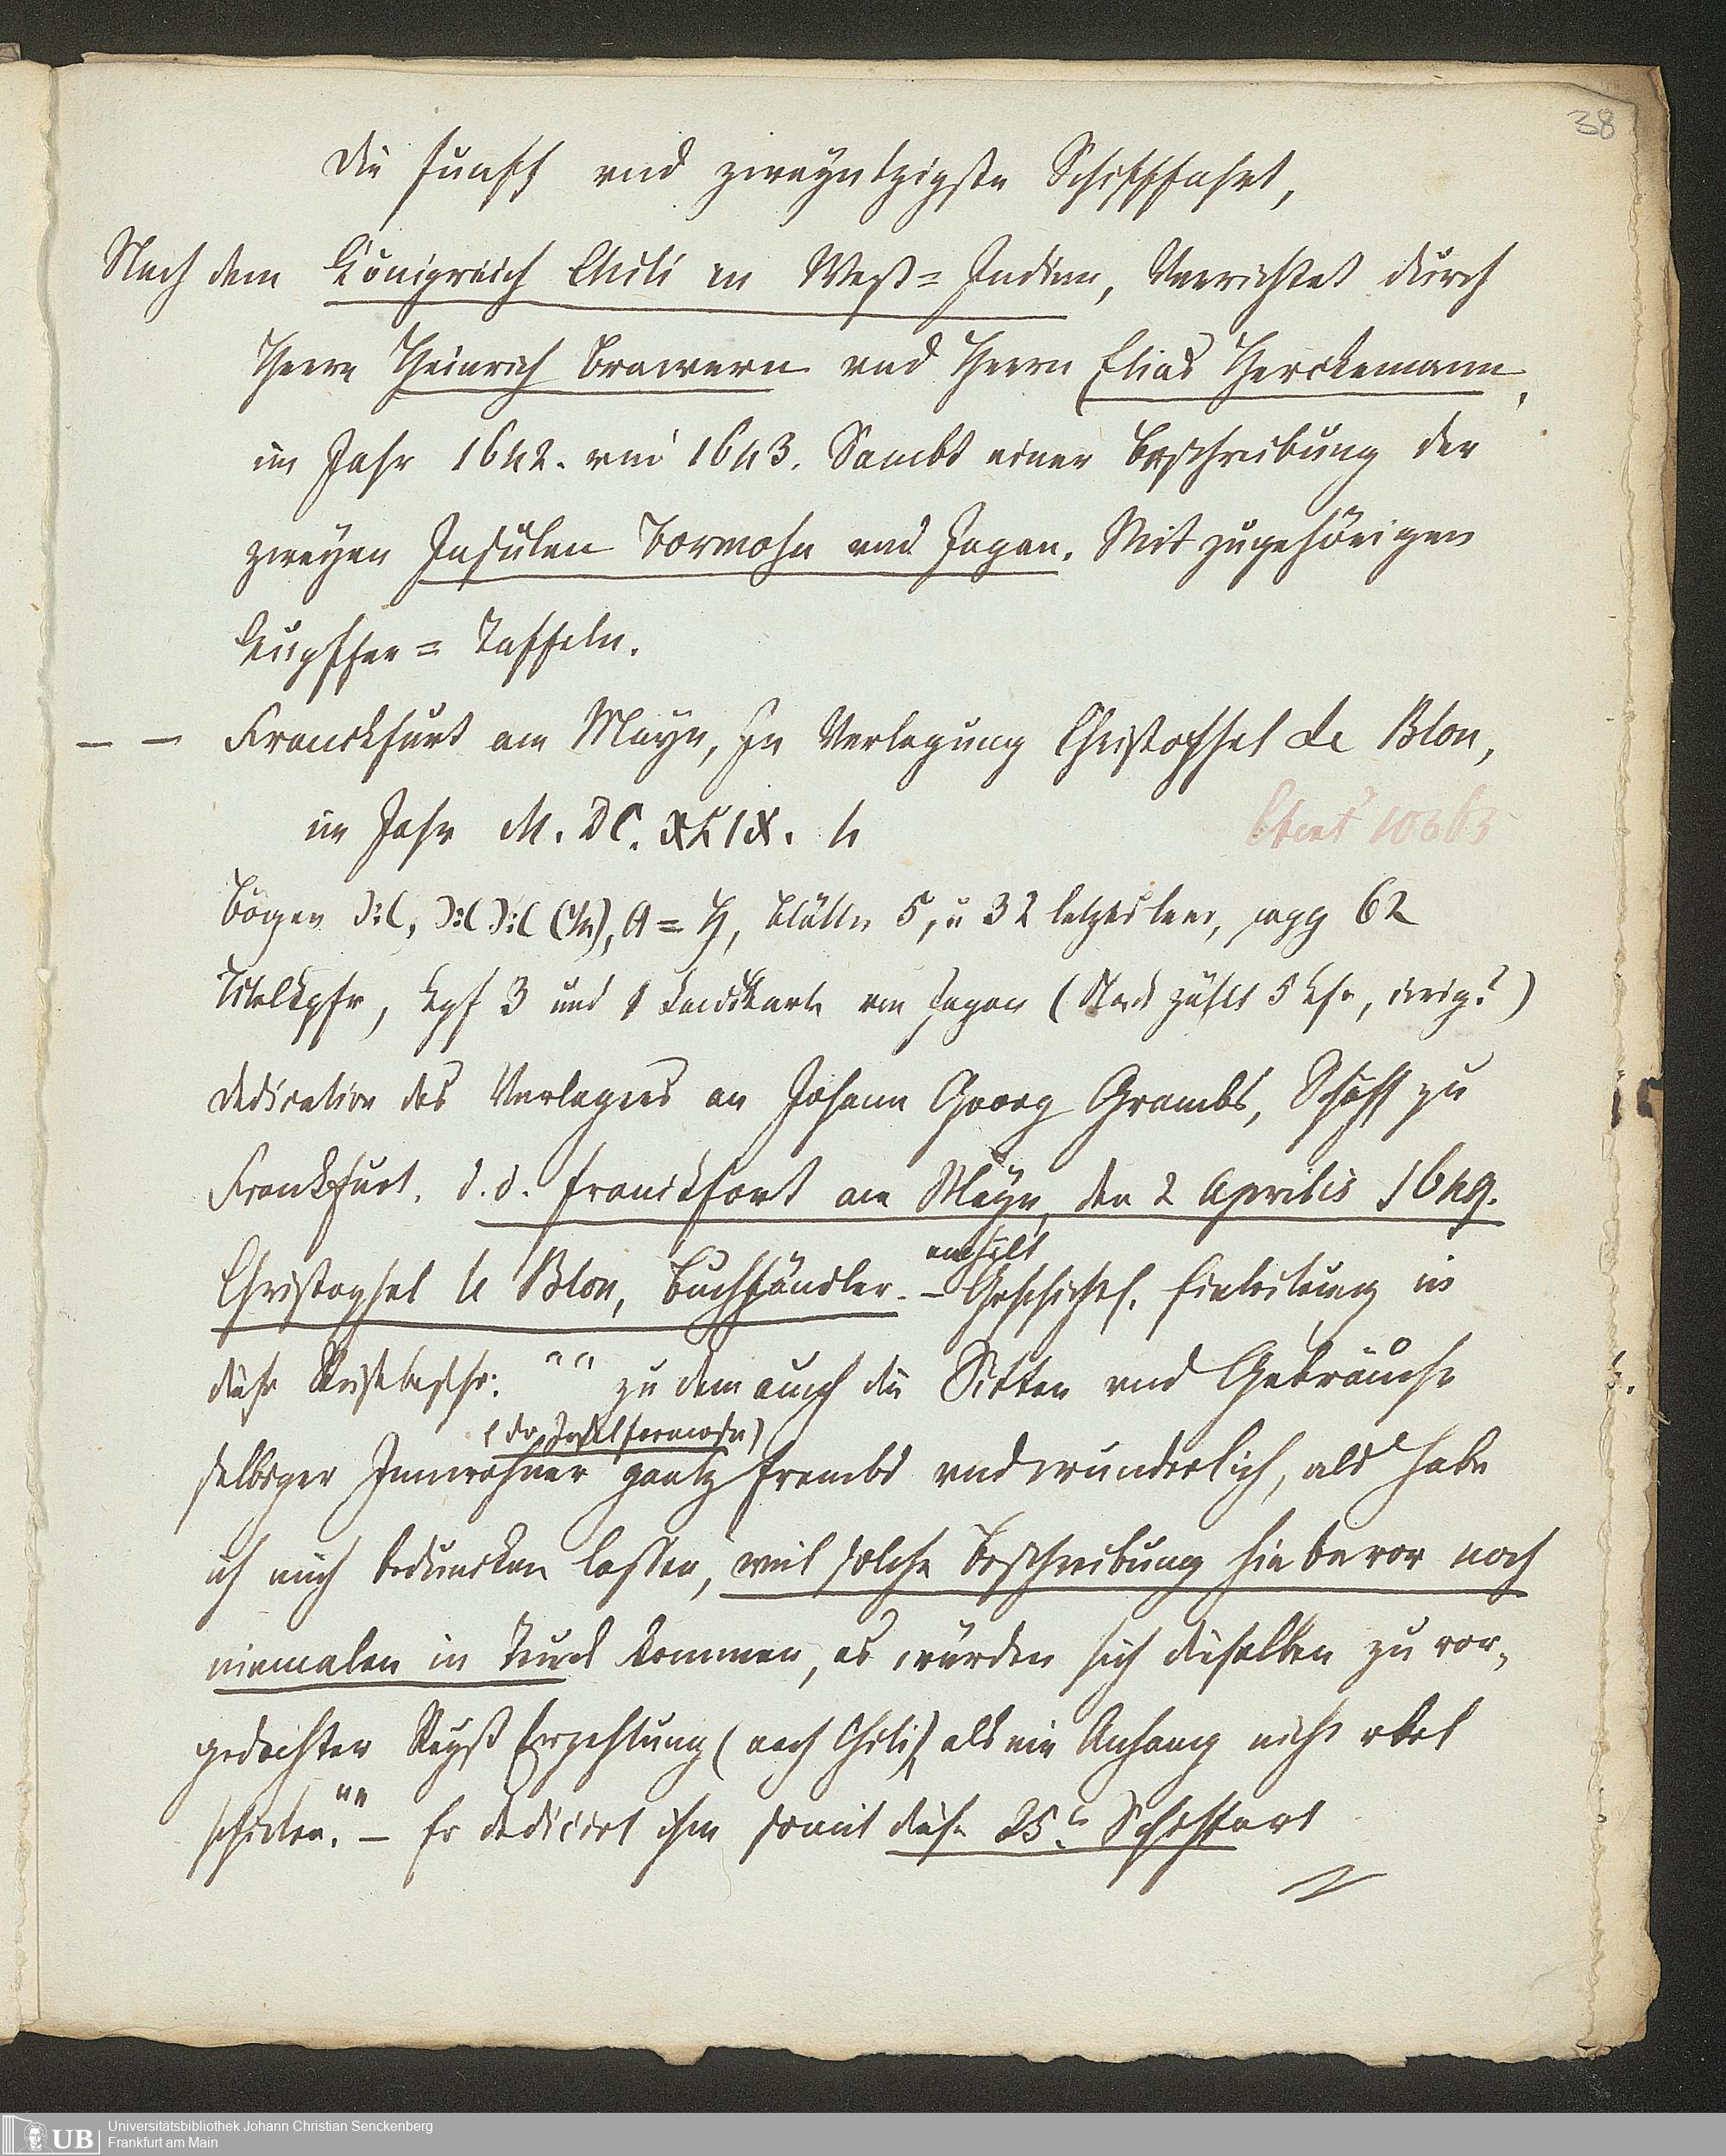 38
Die funfft vnd zweyntzigste Schifffahrt,
Nach dem Königreich Chili in West=Indien, Verrichtet durch
Herrn Heinrich Brawern vnd Herrn Elias Herckemann,
im Jahr 1642. vnd 1643. Sambt einer Beschreibung der
zweyen Insulen Formosa vnd Japan. Mit zugehörigen
Kupffer=Taffeln.
— — Franckfurt am Mayn, In Verlegung Christoffel Le Blon,
im Jahr M. DC. XLIX. 4
10363
Bögen ):(, ):( ):( A = H, Blätter 5, u 32 letztes leer, pagg 62
Titelkpfr, Kpf 3 und 1 Landkarte von Japan ( zählt 5 Kfr, irrig?)
Dedication des Verlegers an Johann Georg Grambs, Schöff zu
Frankfurt. d.d. Franckfort am Mayn, den 2 Aprilis 1649.
Christophel le Blon, Buchhändler. — enthält Geschichtl. Einleitung in
diese Reisebeschr: "" zu dem auch die Sitten vnd Gebräuche
selbiger Innwohner (der Insel Formosa) gantz frembd vnd wunderlich, als habe
ich mich beduncken lassen, weil solche Beschreibung hiebevor noch
niemalen in Truck kommen, es würden sich dieselben zu vor,
gedachter Reyß Erzehlung (nach Chili) als ein Anhang nicht vbel
schicken."" — Er dedicirt ihm somit diese 25.te Schiffart